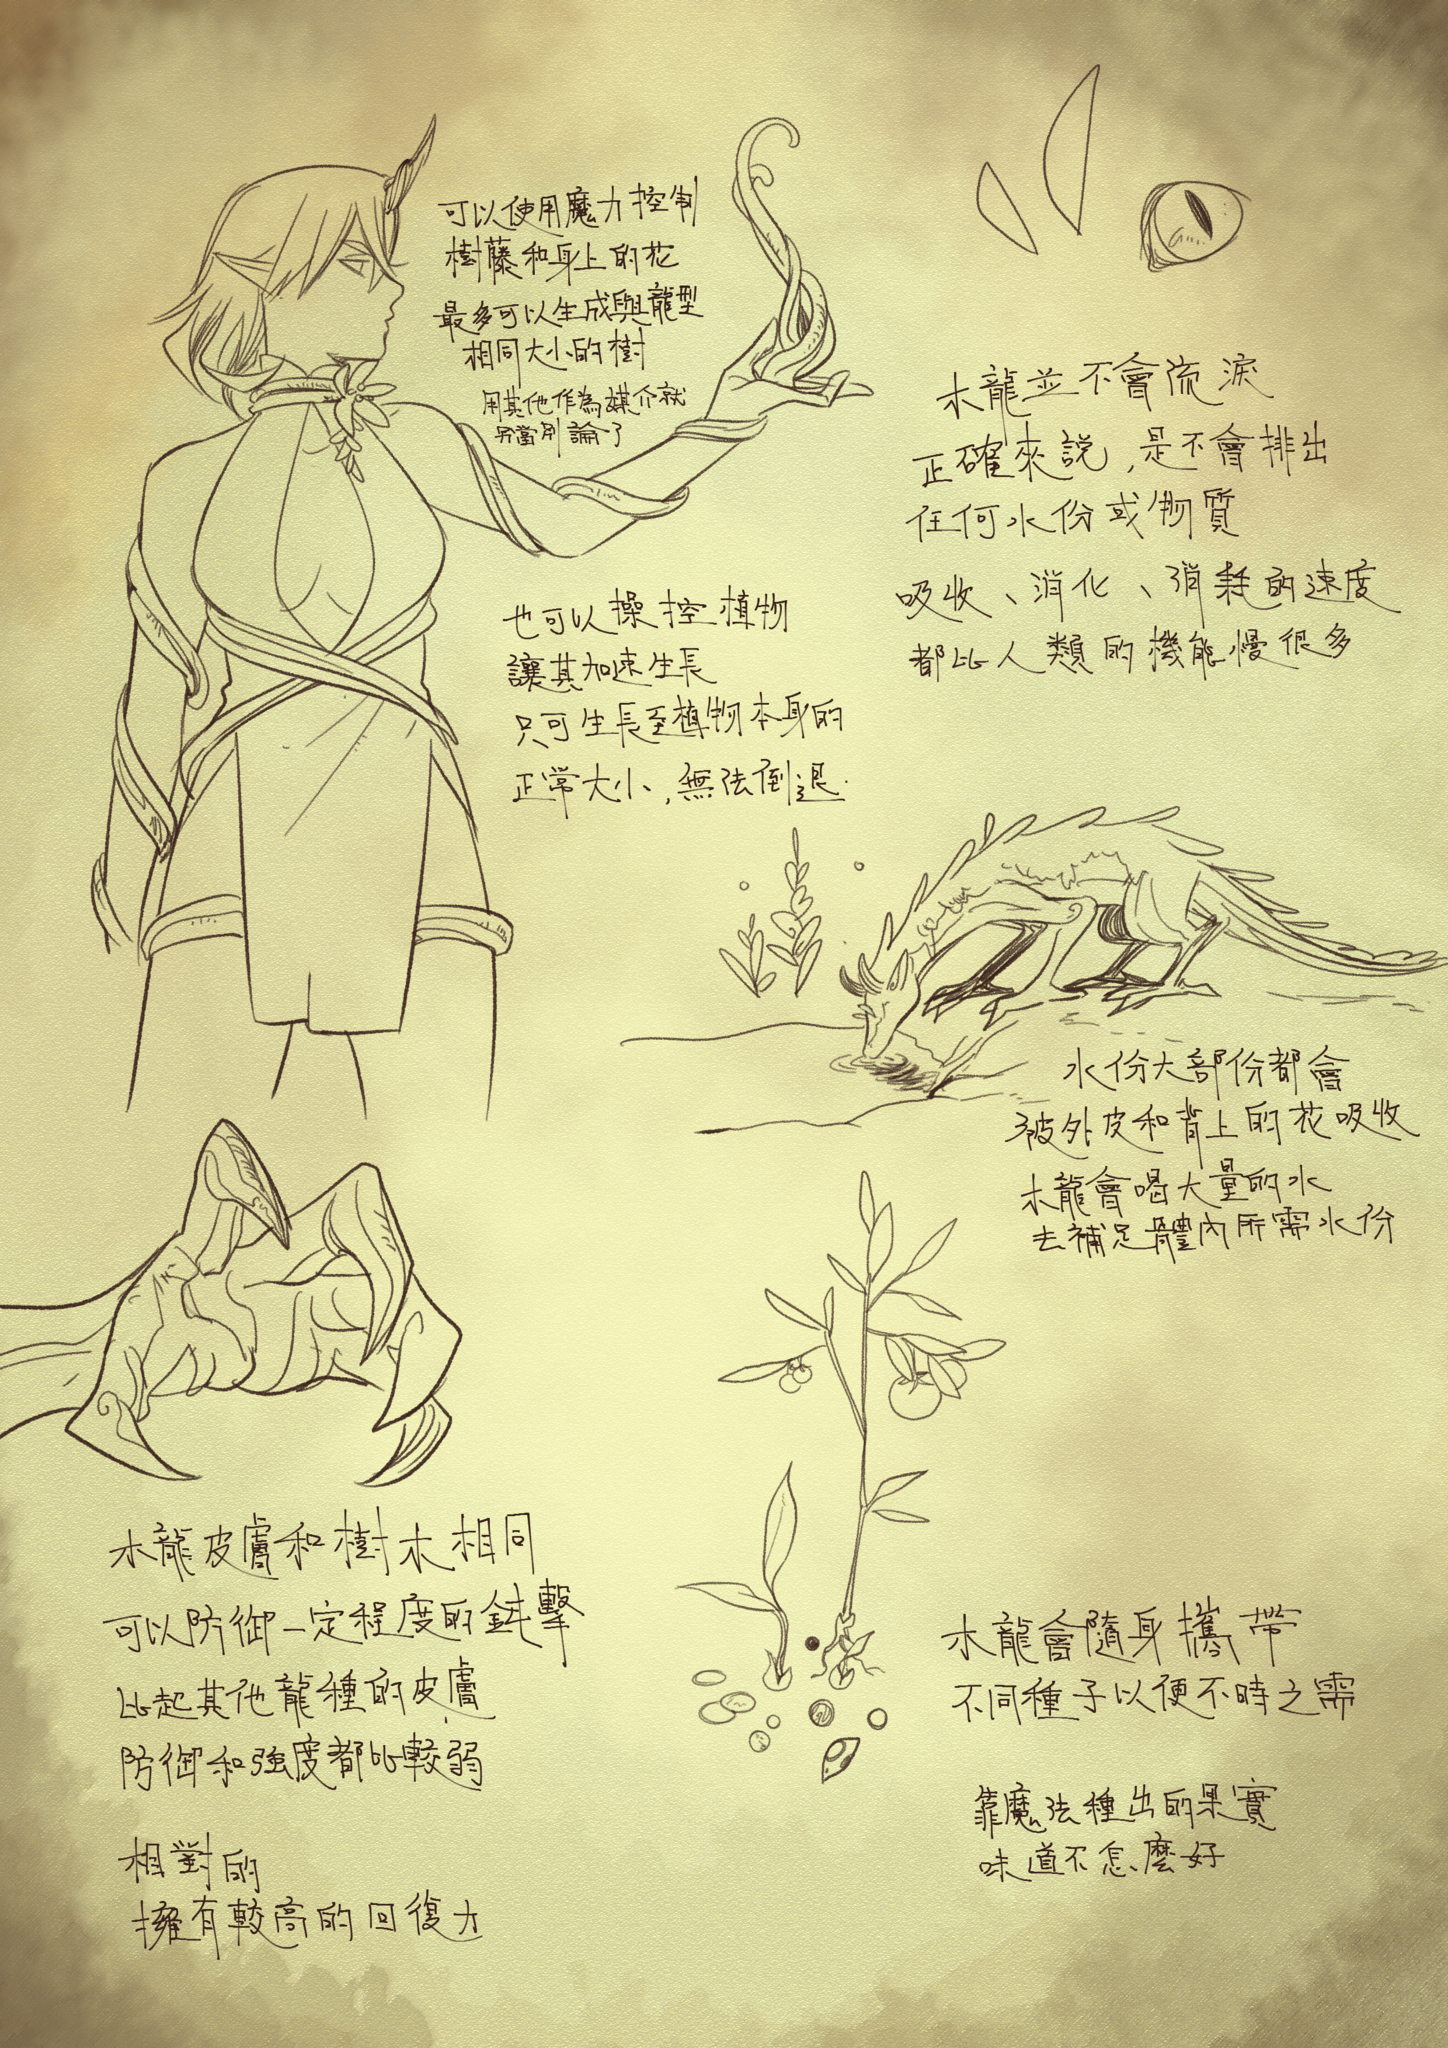 可以使用魔力控制
樹藤和身上的花
最多可以生成與龍型
相同大小的樹
用其他作為媒介就
另當別論了
木龍並不會流淚
正確來說,是不會排出
任何水份或物質
吸收、消化、消耗的速度
都比人類的機能慢很多
也可以操控植物
讓其加速生長
只可生長至植物本身的
正常大小,無法倒退.
水份大部份都會
被外皮和背上的花吸收
木龍會喝大量的水
去補足體內所需水份
木龍皮膚和樹木相同
可以防御一定程度的鈍擊
比起其他龍種的皮膚
防御和強度都比較弱
相對的
擁有較高的回復力
木龍會隨身攜帶
不同種子以便不時之需
靠魔法種出的果實
味道不怎麼好